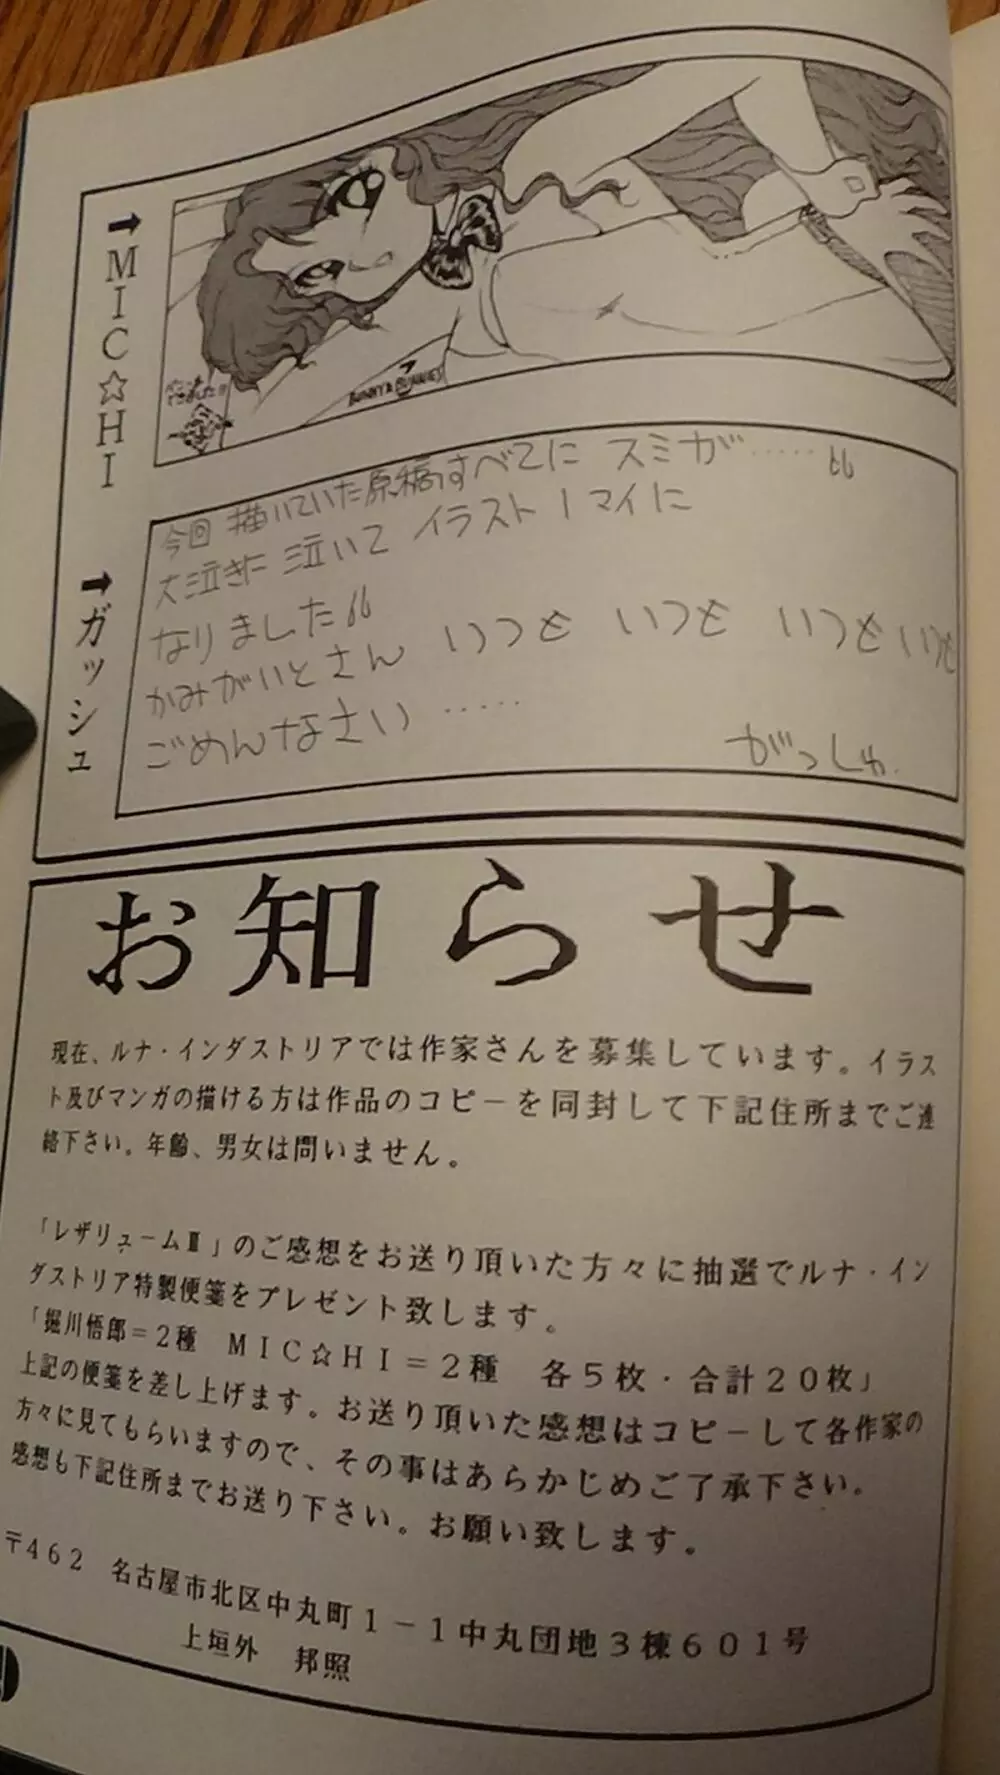 ➡MIC☆HI
➡ガッシュ
BUNNY & BUNNIES
今回 描いていた原稿すべてに スミが……
大泣きに 泣いて イラスト1マイに
なりました
かみがいとさん いつも いつも いつも いつも
ごめんなさい ……
がっしゅ.
お知らせ
現在、ルナ・インダストリアでは作家さんを募集しています。イラス
ト及びマンガの描ける方は作品のコピーを同封して下記住所までご連
絡下さい。年齢、男女は問いません。
「レザリュームⅢ」のご感想をお送り頂いた方々に抽選でルナ・イン
ダストリア特製便箋をプレゼント致します。
「堀川悟郎=2種 MIC☆HI=2種 各5枚・合計20枚」
上記の便箋を差し上げます。お送り頂いた感想はコピーして各作家の
方々に見てもらいますので、その事はあらかじめご了承下さい。
感想も下記住所までお送り下さい。お願い致します。
〒462 名古屋市北区中丸町1-1中丸団地3棟601号
上垣外 邦照